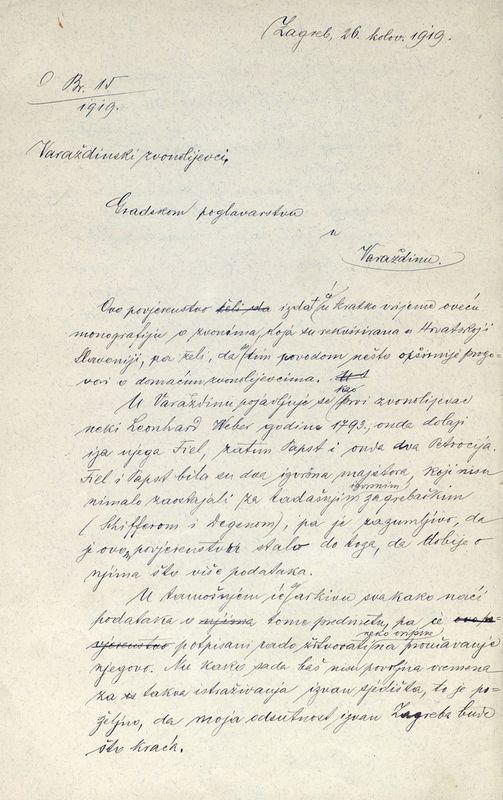 Zagreb, 26. kolov. 1919.
Br. 15
1919.
Varaždinski zvonolijevci.
Gradskom poglavarstvu
u
Varaždinu.
Ovo povjerenstvo želi sda izdati za kratko vrijeme oveću
monografiju o zvonima, koja su rekvirirana u Hrvatskoj i
Slavoniji, pa želi, da tim povodom nešto opširnije progo-
vori o domaćim zvonolijevcima.
U Varaždinu pojavljuje se kao prvi zvonolijevac
neki Leonhard Weber godine 1793, onda dolazi
iza njega Fiel, zatim Papst i onda dva Petrocija.
Fiel i Papst bila su dva izvrsna majstora, koji nisu
nimalo zaostajali za tadašnjim izvrsnim zagrebačkim
(Schifferom i Degenom), pa je razumljivo, da
je ovom povjerenstvu stalo do toga, da dobije o
njima što više podataka.
U tamošnjem će se arkivu svakako naći
podataka o njima tome predmetu, pa će ovo po-
vjerenstvo potpisani rado žrtvovati neko vrijeme na proučavanje
njegovo. No kako sada baš nisu povoljna vremena
za takva istraživanja izvan sjedišta, to je po-
željno, da moja odsutnost izvan Zagreba bude
što kraća.